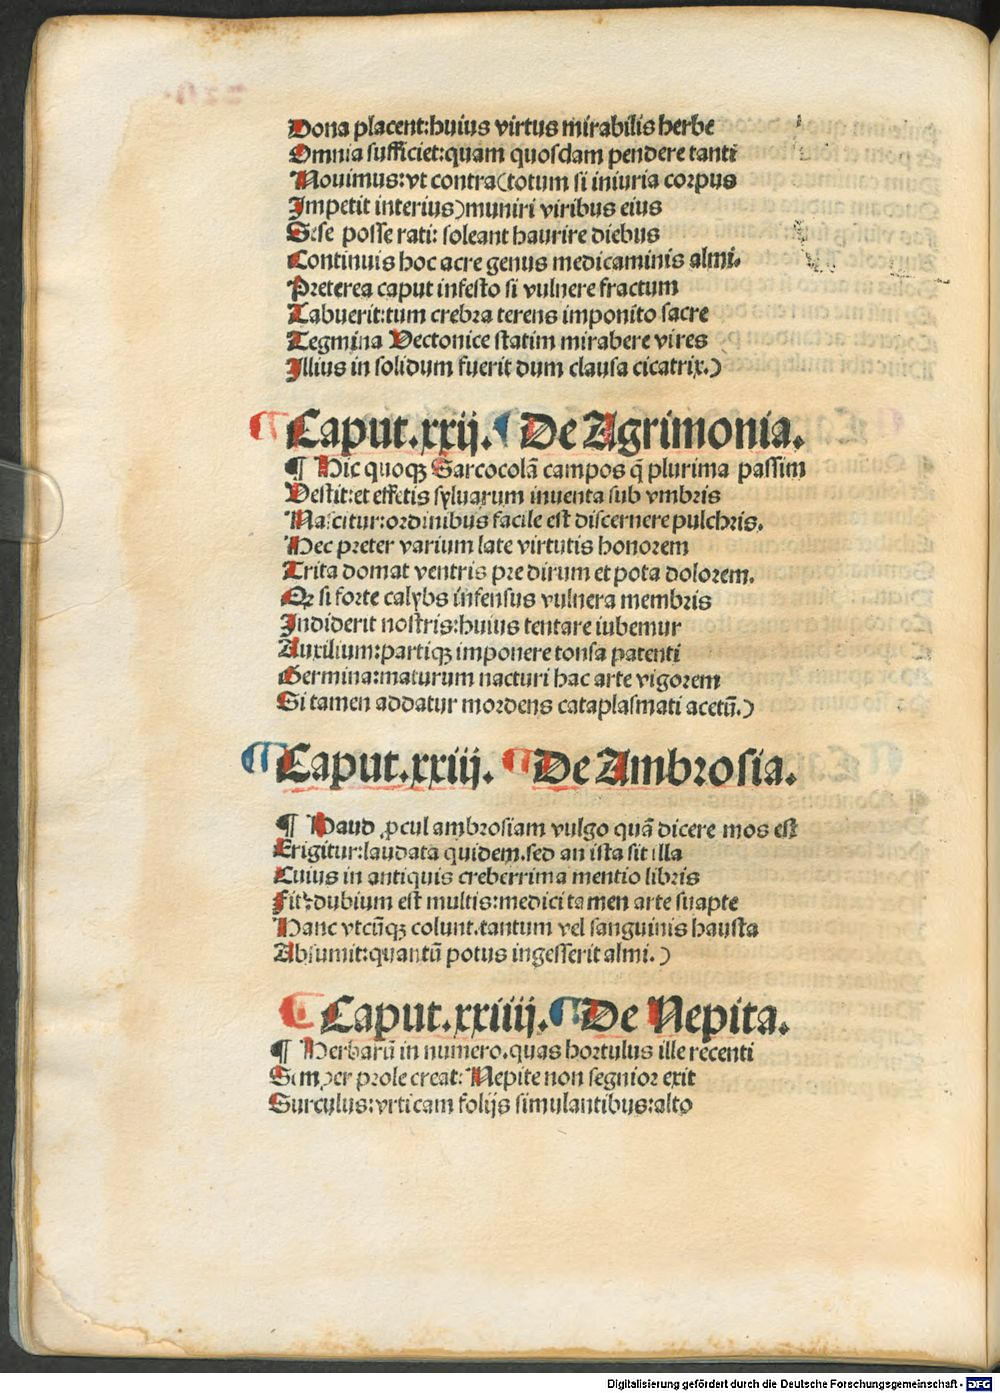 Dona placent:huius virtus mirabilis herbe
Omnia sufficiet:quam quosdam pendere tanti
Nouimus:vt contra(totum si iniuria corpus
Impetit interius)muniri viribus eius
Sese posse rati: soleant haurire diebus
Continuis hoc acre genus medicaminis almi.
Preterea caput infesto si vulnere fractum
Tabuerit:tum crebra terens imponito sacre
Tegmina Vectonice statim mirabere vires
Illius in solidum fuerit dum clausa cicatrix.)
¶ Caput.xxij. ¶ De Agrimonia.
¶ Hic quoqꝫ Sarcocolã campos q̃ plurima passim
Vestit:et effetis syluarum inuenta sub vmbris
Nascitur:ordinibus facile est discernere pulchris.
Hec preter varium late virtutis honorem
Trita domat ventris pre dirum et pota dolorem.
Qꝫ si forte calybs infensus vulnera membris
Indiderit nostris:huius tentare iubemur
Auxilium:partiqꝫ imponere tonsa patenti
Germina:maturum nacturi hac arte vigorem
Si tamen addatur mordens cataplasmati acetũ.)
¶ Caput.xxiij. ¶ De Ambrosia.
¶ Haud ꝓcul ambrosiam vulgo quã dicere mos est
Erigitur:laudata quidem.sed an ista sit illa
Cuius in antiquis creberrima mentio libris
Fit:dubium est multis:medici tamen arte suapte
Hanc vtcũqꝫ colunt.tantum vel sanguinis hausta
Absumit:quantũ potus ingesserit almi.)
¶ Caput.xxiiij. ¶ De Nepita.
¶ Herbarũ in numero.quas hortulus ille recenti
Semper prole creat: Nepite non segnior exit
Surculus:vrticam folijs simulantibus:alto
Digitalisierung gefördert durch die Deutsche Forschungsgemeinschaft - DFG